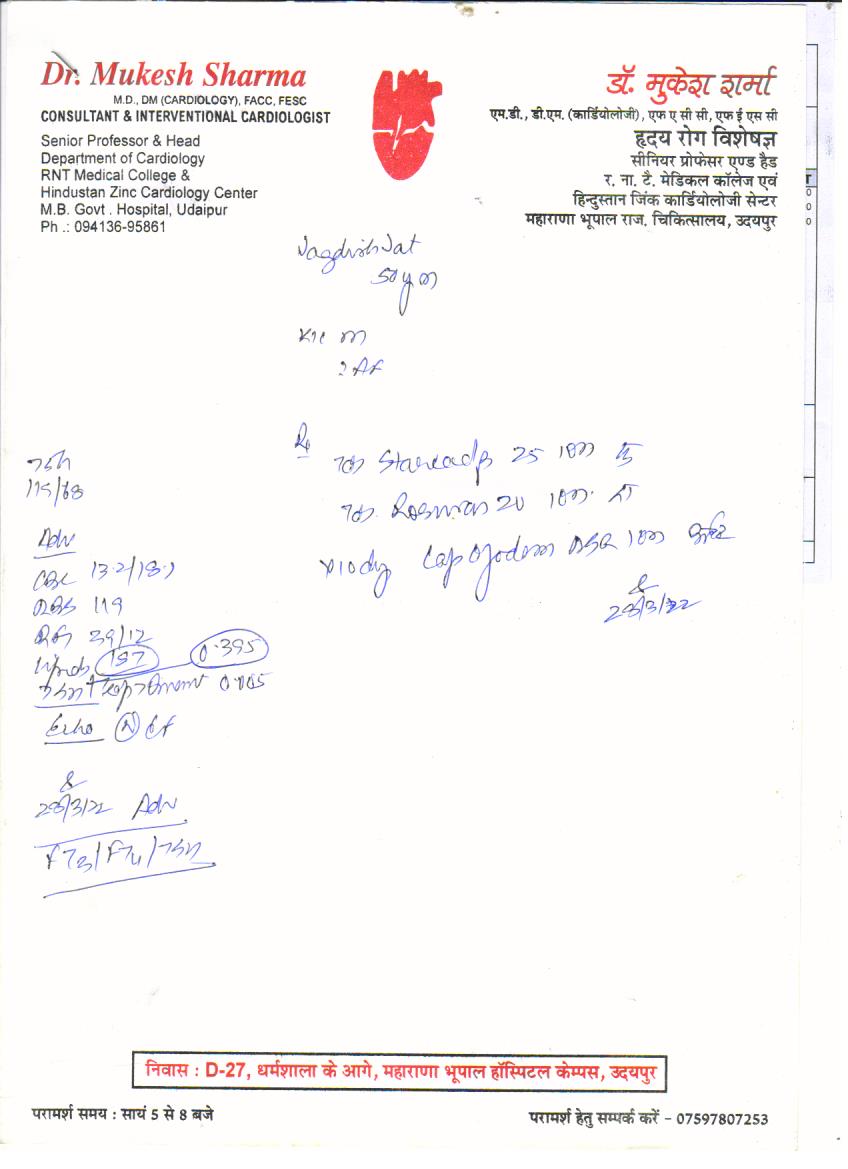 Dr. Mukesh Sharma
M.D., DM (CARDIOLOGY), FACC, FESC
CONSULTANT & INTERVENTIONAL CARDIOLOGIST
Senior Professor & Head
Department of Cardiology
RNT Medical College &
Hindustan Zinc Cardiology Center
M.B. Govt . Hospital, Udaipur
Ph .: 094136-95861
डॉ. मुकेश शर्मा
एम.डी., डी.एम. (कार्डियोलोजी), एफ ए सी सी, एफ ई एस सी
हृदय रोग विशेषज्ञ
सीनियर प्रोफेसर एण्ड हैड
र. ना. टै. मेडिकल कॉलेज एवं
हिन्दुस्तान जिंक कार्डियोलोजी सेन्टर
महाराणा भूपाल राज. चिकित्सालय, उदयपुर
Jagdish Jat
50y m
? AF
Rx
25
20
x10dy Cap DSR
28/3/22
Adv
CBC 13.2/
RBS 119
39/12
Lipids 157 0.395
0.005
Echo N EF
28/3/22 Adv
FT3/FT4/TSH
निवास : D-27, धर्मशाला के आगे, महाराणा भूपाल हॉस्पिटल केम्पस, उदयपुर
परामर्श समय : सायं 5 से 8 बजे
परामर्श हेतु सम्पर्क करें - 07597807253